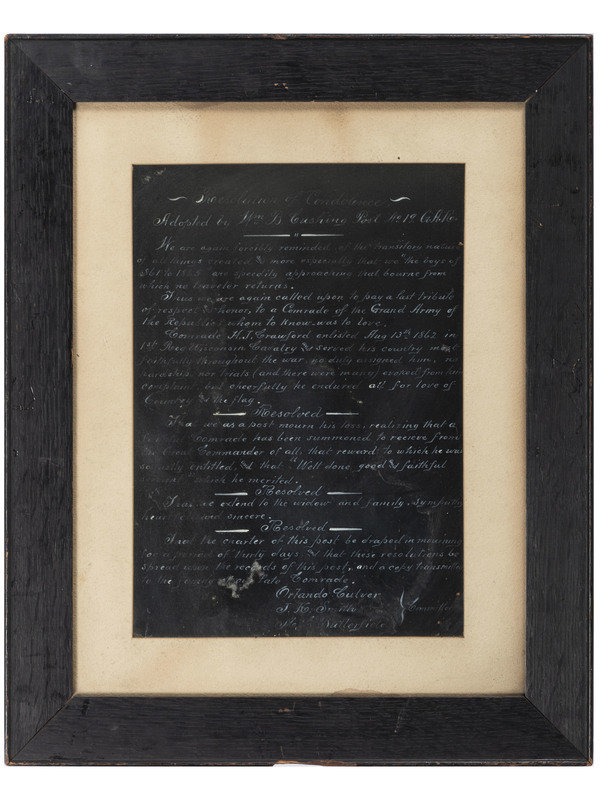 Resolution of Condolence
Adopted by Wm B. Cushing Post No 19
We are again forcibly reminded, of the transitory nature
of all things created & more especially that we "the boys of
1861 to 1865" are speedily approaching that bourne from
which no traveler returns.
Thus we are again called upon to pay a last tribute
of respect & honor, to a Comrade of the Grand Army of
the Republic: whom to know was to love.
Comrade H. J. Crawford enlisted Aug 13th 1862 in
1st Regt Wisconsin Cavalry & served his country most
faithfully throughout the war, no duty assigned him, no
hardship nor trials (and there were many) evoked from him
complaint, but cheerfully he endured all for love of
Country & the flag.
Resolved
That we as a post mourn his loss, realizing that a
Comrade has been summoned to recieve from
the Great Commander of all, that reward to which he was
so justly entitled, & that "Well done good & faithful
servant" which he merited.
Resolved
That we extend to the widow and family, sympathy
heartfelt and sincere.
Resolved
That the charter of this post be draped in mourning
for a period of thirty days, & that these resolutions be
spread upon the records of this post, and a copy transmitted
to the family of our late Comrade.
Orlando Culver
Smith Committee
Butterfield